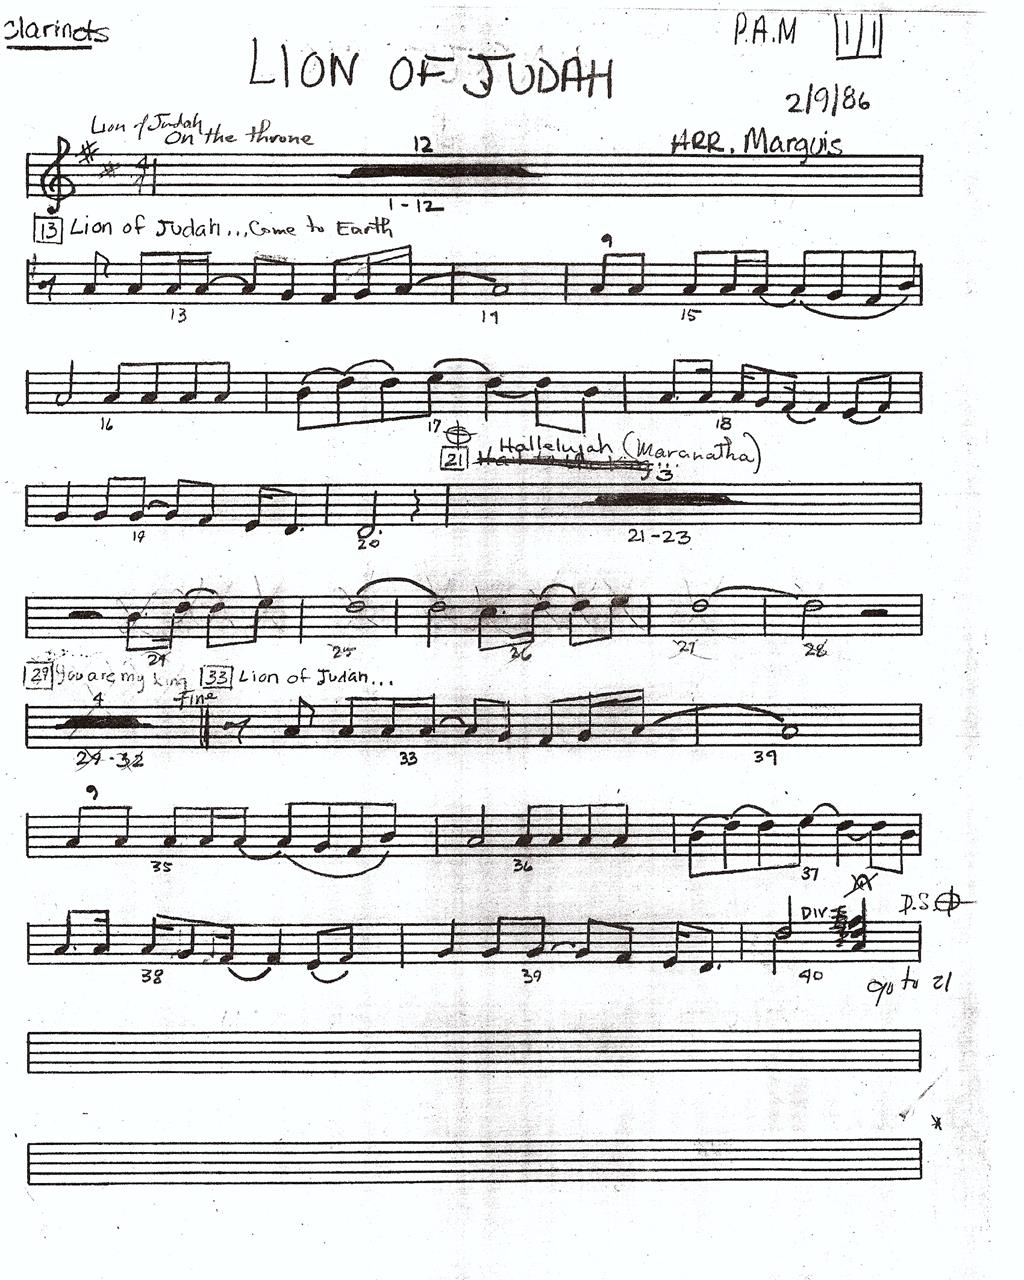 Clarinets
P.A.M 1/1
LION OF JUDAH
2/9/86
Lion of Judah
On the throne
12
ARR. Marquis
4
1-12
13 Lion of Judah... Come to Earth
9
13 14 15
16 17 18
21 Hallelujah (Maranatha)
3
19 20 21-23
24 25 26 27 28
29 You are my King Fine 33 Lion of Judah...
4
29-32 33 39
9
35 36 37
DIV. D.S.
38 39 40
go to 21
*